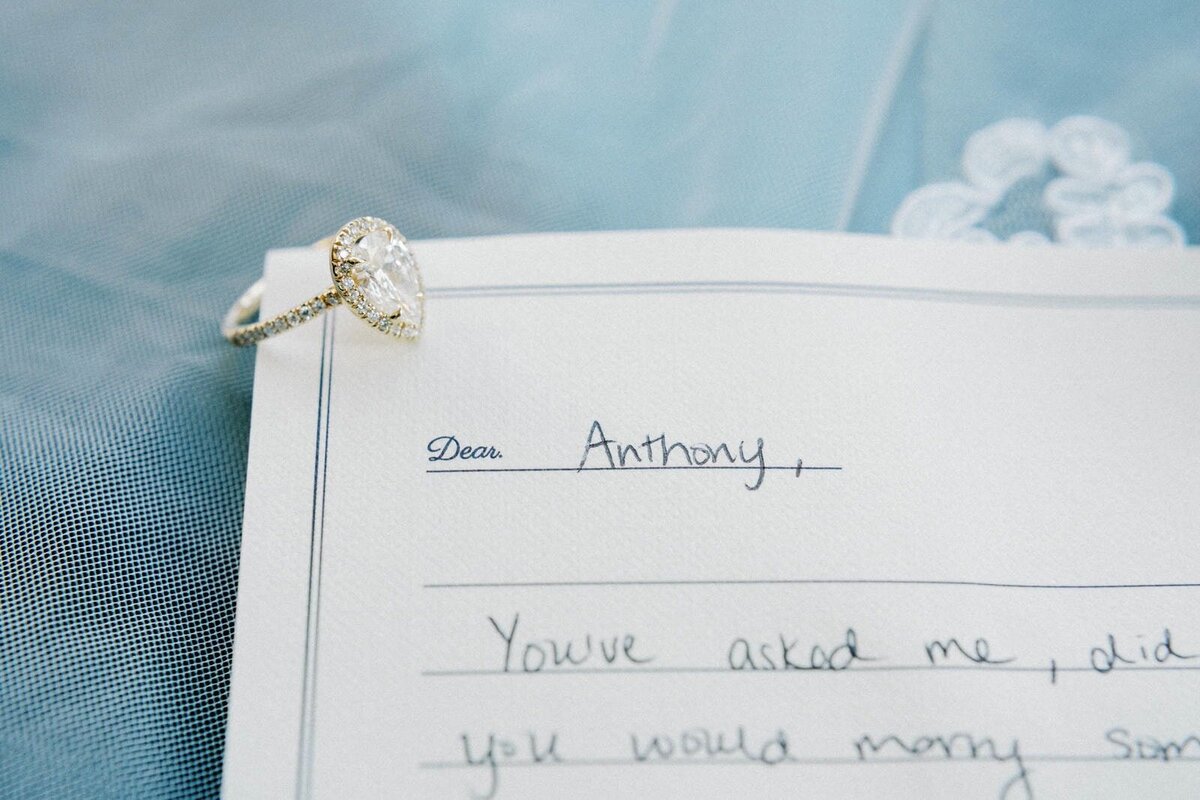 Dear. Anthony,
You've asked me, did
you would marry som